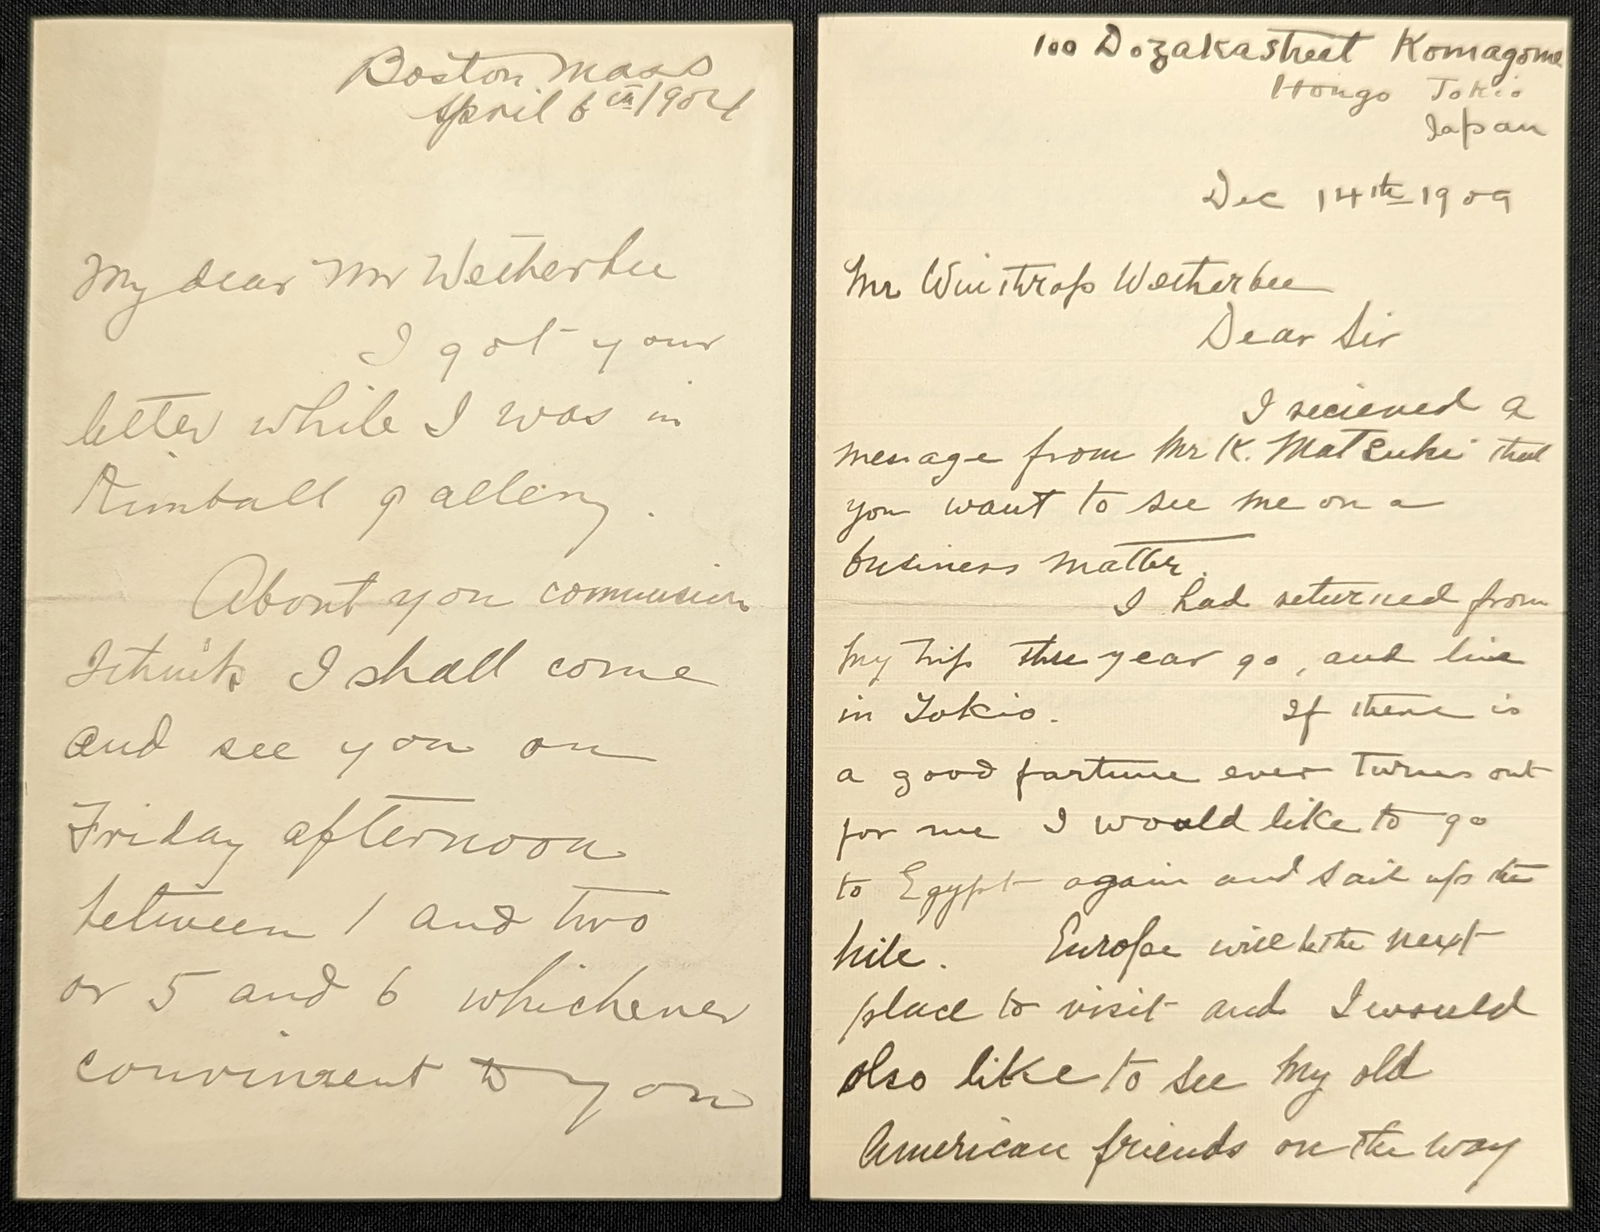 Boston Mass
April 6th 1904
My dear Mr Wetherbee
I got your
letter while I was in
Kimball gallery.
About you commission
I think I shall come
and see you on
Friday afternoon
between 1 and two
or 5 and 6 whichever
convinient to you
100 Dozakastreet Komagome
Hongo Tokio
Japan
Dec 14th 1909
Mr Winthrop Wetherbee
Dear Sir
I recieved a
message from Mr K. Matsuki that
you want to see me on a
business matter.
I had returned from
my trip this year go, and live
in Tokio. If there is
a good fortune ever turns out
for me I would like to go
to Egypt again and sail up the
Nile. Europe will be the next
place to visit and I would
also like to see my old
American friends on the way